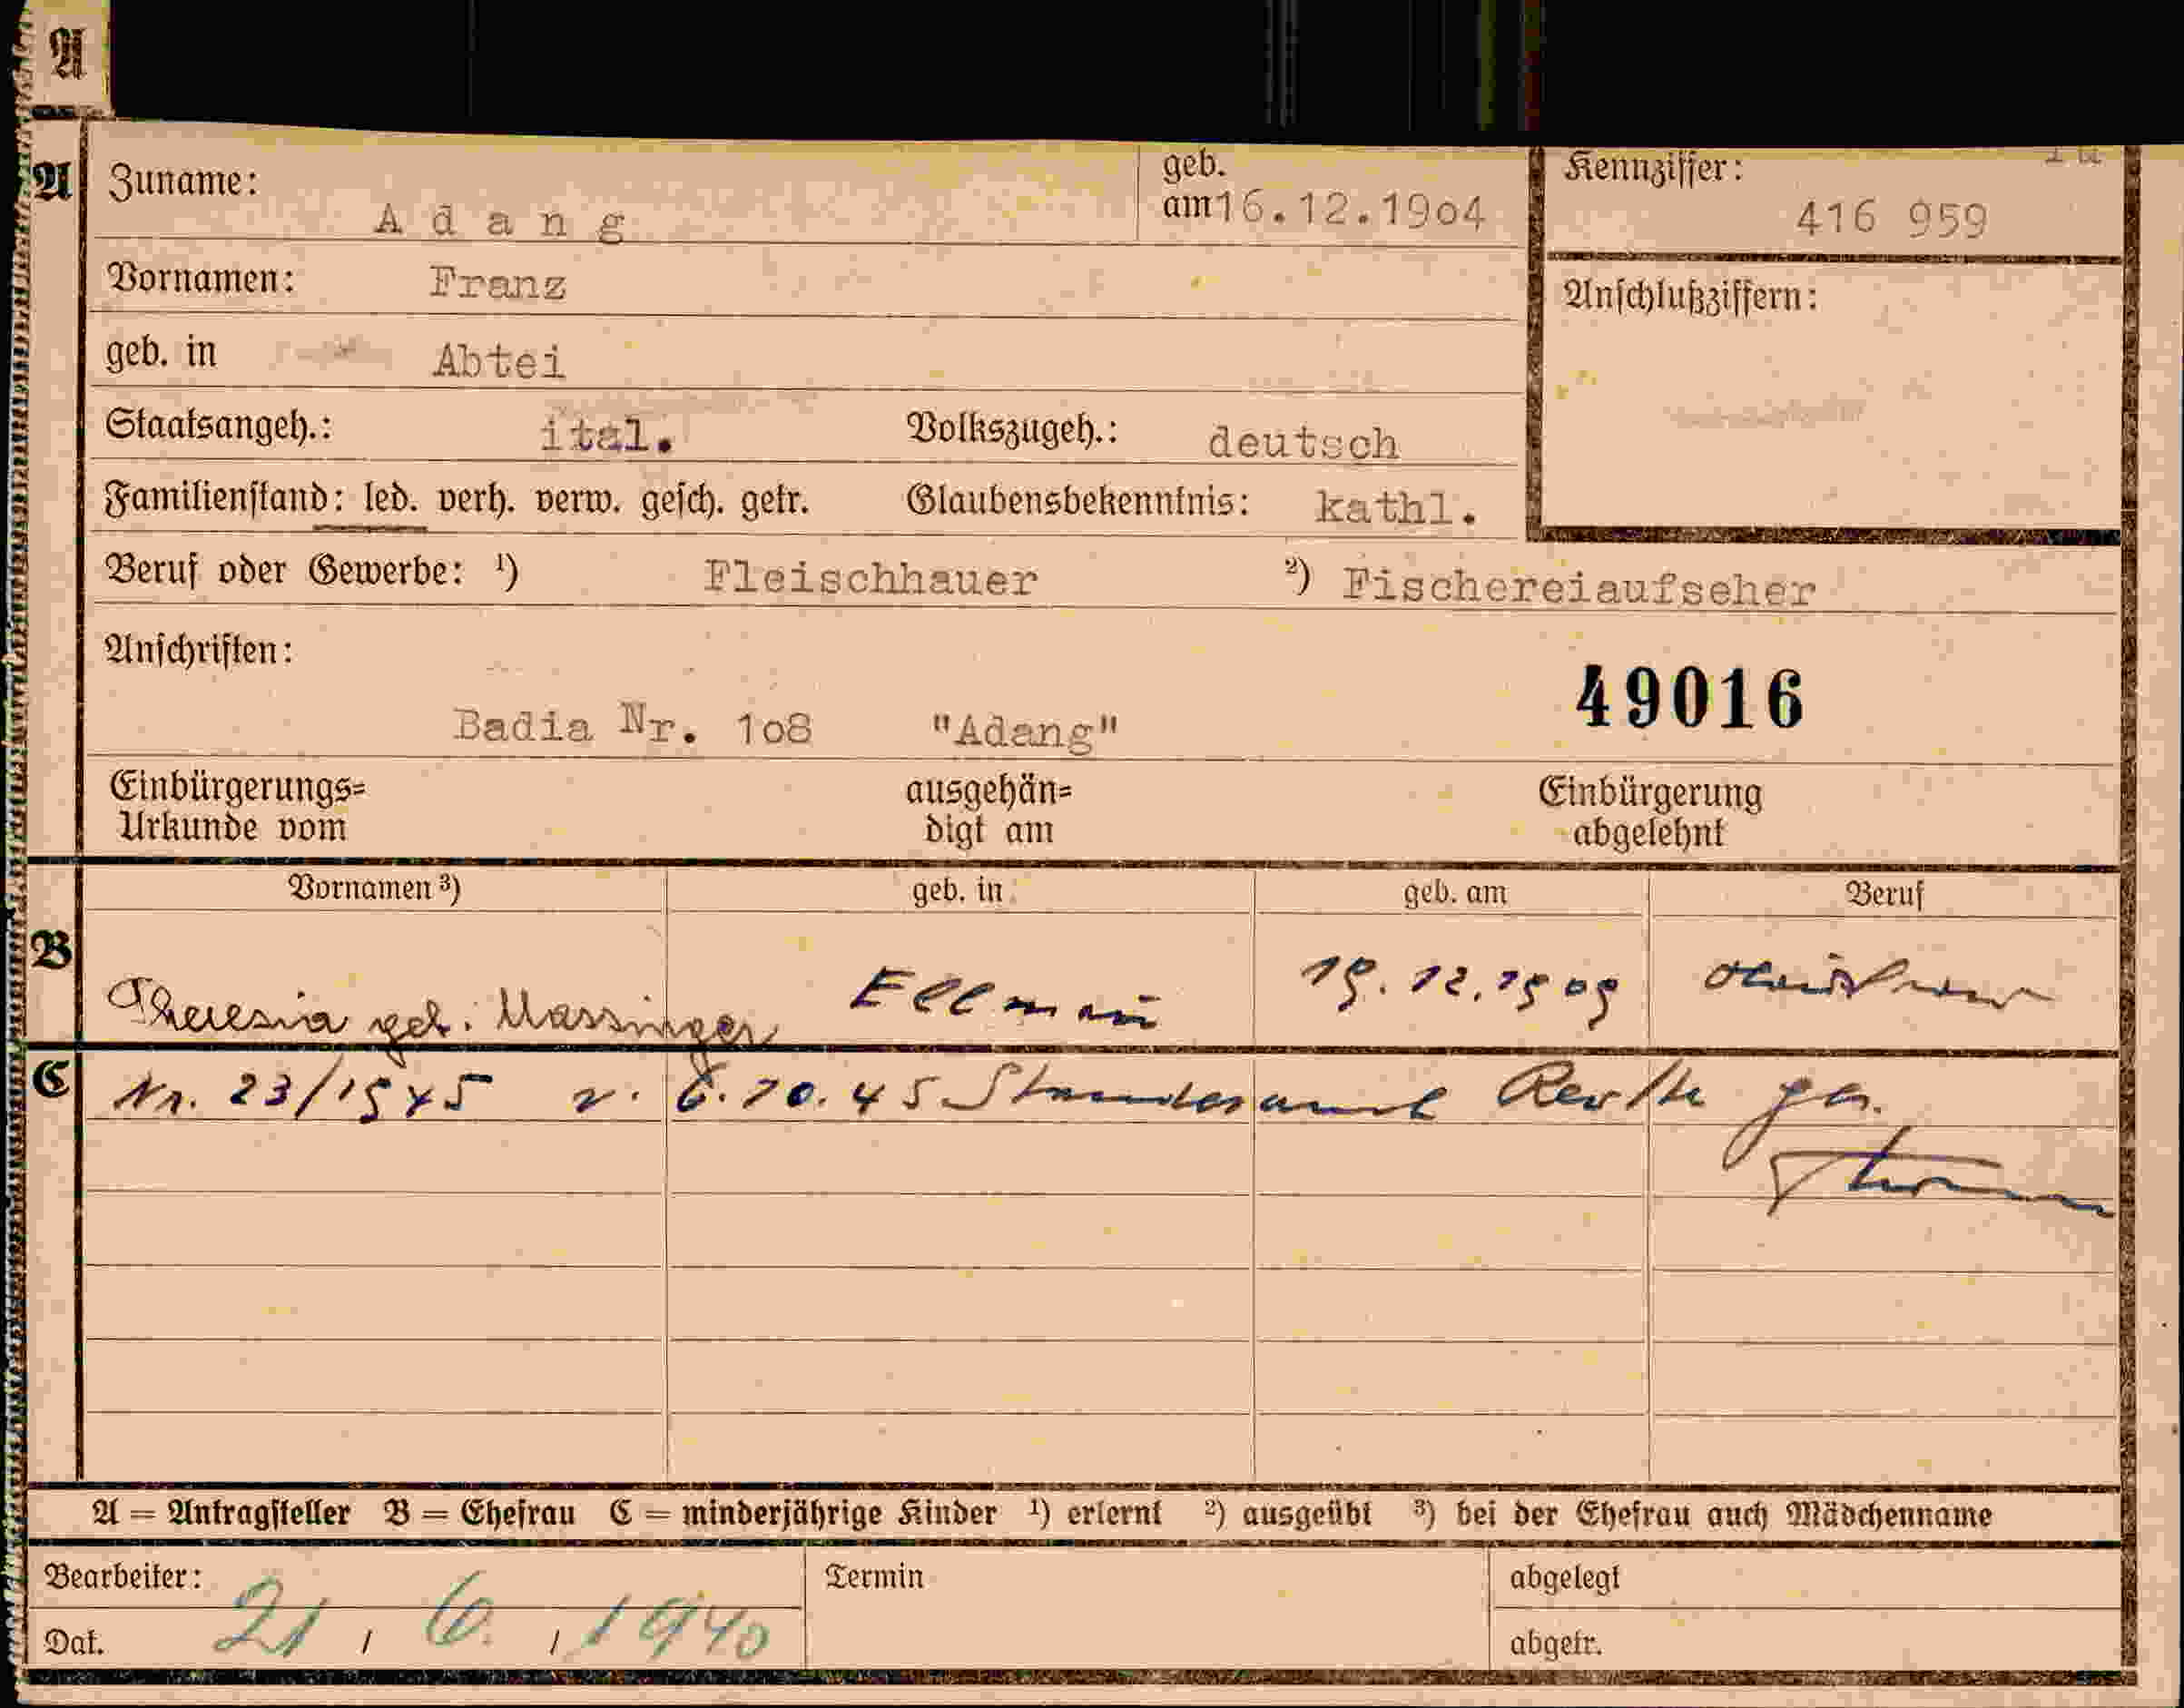 A
A
Zuname: Adang
geb. am 16.12.1904
Kennziffer: 416 959
Vornamen: Franz
Anschlußziffern:
geb. in Abtei
Staatsangeh.: ital. Volkszugeh.: deutsch
Familienstand: led. verh. verw. gesch. getr. Glaubensbekenntnis: kathl.
Beruf oder Gewerbe: ¹) Fleischhauer ²) Fischereiaufseher
Anschriften:
49016
Badia Nr. 108 "Adang"
Einbürgerungs= ausgehän= Einbürgerung
Urkunde vom digt am abgelehnt
Vornamen ³) geb. in geb. am Beruf
B
Theresia geb. Massinger Ellmau 19.12.1909
C
Nr. 23/1945 v. 6.10.45 Standesamt
A = Antragsteller B = Ehefrau C = minderjährige Kinder ¹) erlernt ²) ausgeübt ³) bei der Ehefrau auch Mädchenname
Bearbeiter: Termin abgelegt
Dat. 21 / 6. / 1940 abgetr.